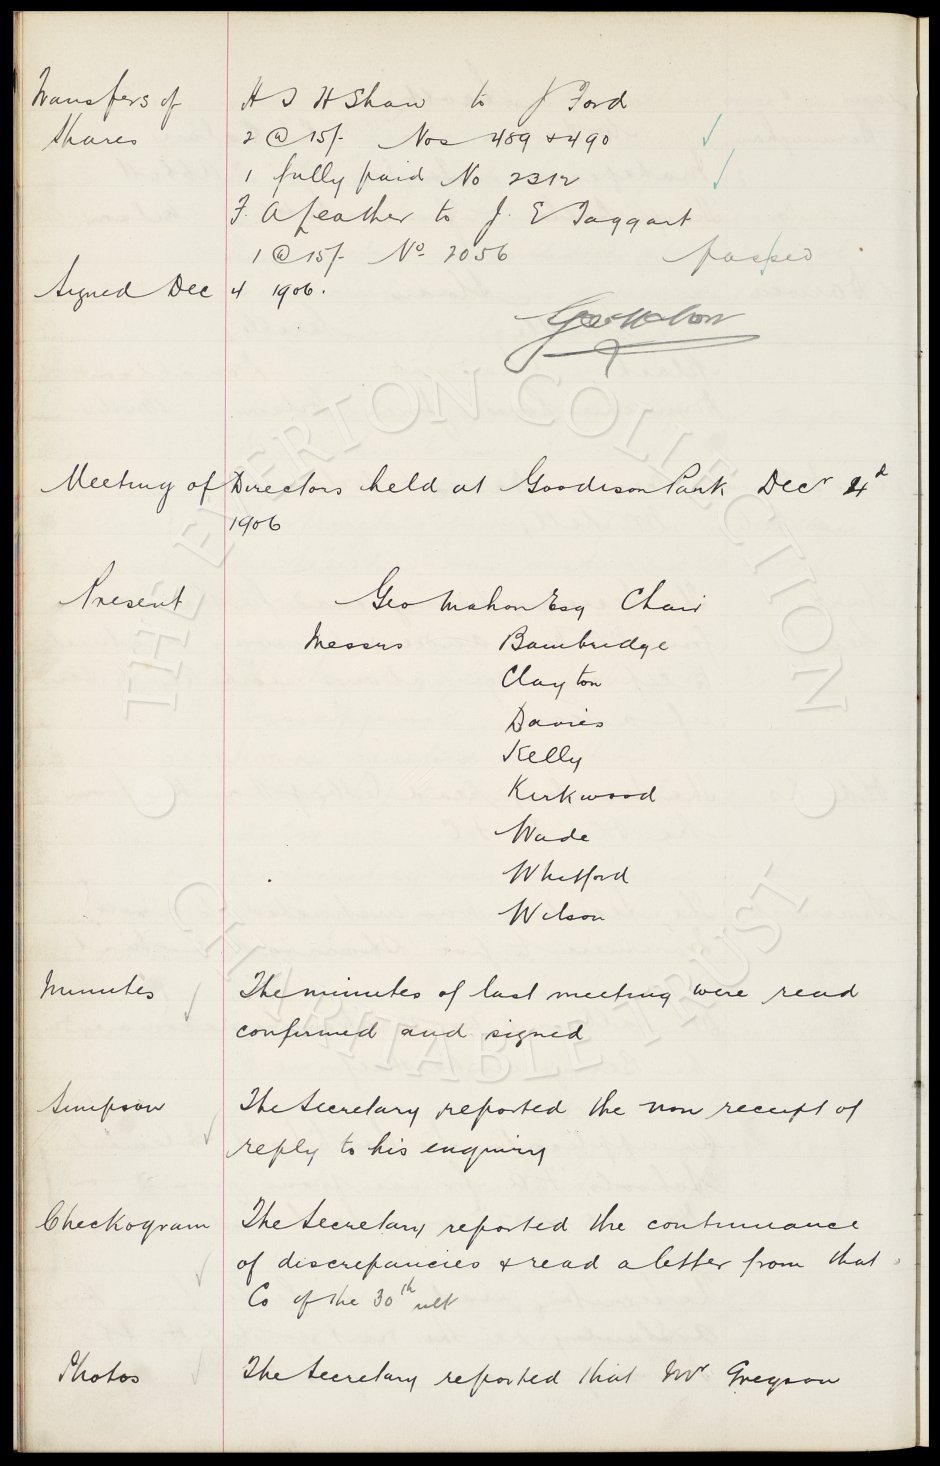 Transfers of H S H Shaw to J Ford
Shares 2 @ 15/- Nos 489 & 490
1 fully paid No 2312
F. A feather to J. E Taggart
1 @ 15/- No 2056 passed
Signed Dec 4 1906.
Geo Mahon
Meeting of Directors held at Goodison Park Decr 4th
1906
Present Geo Mahon Esq Chair
Messrs Bainbridge
Clayton
Davies
Kelly
Kirkwood
Wade
Whitford
Wilson
Minutes The minutes of last meeting were read
confirmed and signed
Simpson The Secretary reported the non receipt of
reply to his enquiry
Checkogram The Secretary reported the continuance
of discrepancies & read a letter from that
Co of the 30th ult
Photos The Secretary reported that Mr Gregson
THE EVERTON COLLECTION
CHARITABLE TRUST